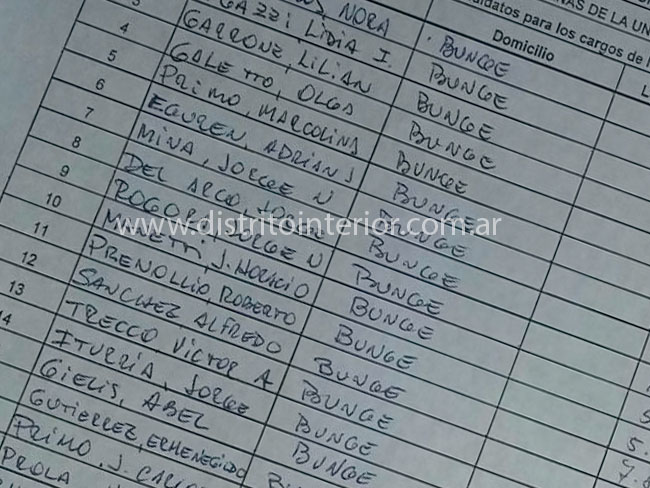 NAS DE LA UN
didatos para los cargos de
NORA
Domicilio
3 GAZZI LIDIA I. BUNGE
4 GARRONE, LILIAN BUNGE
5 GALETTO, OLGA BUNGE
6 PRIMO, MARCOLINA BUNGE
7 EGUREN, ADRIAN J BUNGE
8 MINA, JORGE N BUNGE
9 DEL ARCO, BUNGE
10 JORGE N BUNGE
11 J. HORACIO BUNGE
12 PRENOLLIO, ROBERTO BUNGE
13 SANCHEZ ALFREDO BUNGE
14 TRECCO VICTOR A BUNGE
ITURRIA, JORGE BUNGE
GIELIS, ABEL BUNGE
GUTIERREZ, ERMENEGILDO BUNGE
PRIMO, J. BUNGE
PROLA
www.distritointerior.com.ar